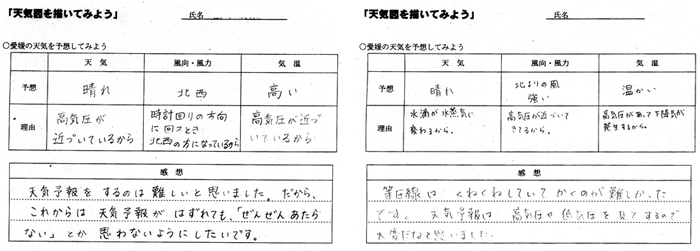 「天気図を描いてみよう」 氏名
○愛媛の天気を予想してみよう
天気 風向・風力 気温
予想 晴れ 北西 高い
理由 高気圧が 時計回りの方向 高気圧が近づ
近づいているから に回るとき いているから
北西の方になっているから
感想
天気予報をするのは難しいと思いました。だから、
これからは天気予報がはずれても、「ぜんぜんあたら
ない」とか思わないようにしたいです。
「天気図を描いてみよう」 氏名
○愛媛の天気を予想してみよう
天気 風向・風力 気温
予想 晴れ 北よりの風 温かい
強い
理由 水滴が水蒸気に 高気圧が近づいて 高気圧があって下降気流が
変わるから。 きてるから。 発生するから。
感想
等圧線はくねくねしていてかくのが難しかった
です。天気予報は高気圧や低気圧を見てするので
大変だなと思いました。